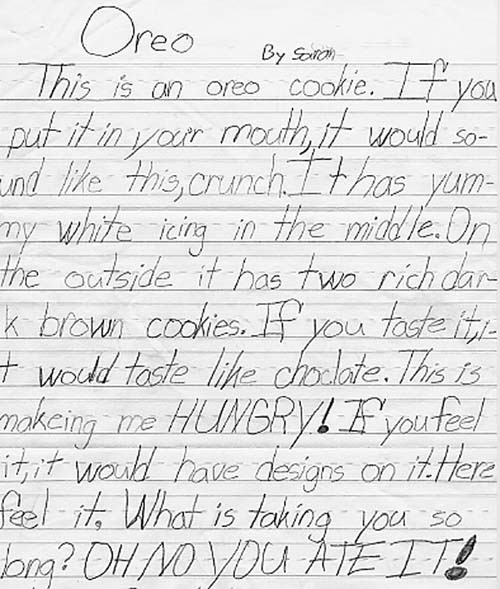 Oreo
By Sarah
This is an oreo cookie. If you
put it in your mouth, it would so-
und like this, crunch. It has yum-
my white icing in the middle. On
the outside it has two rich dar-
k brown cookies. If you taste it, i-
t would taste like choclate. This is
makeing me HUNGRY! If you feel
it, it would have designs on it. Here
feel it. What is taking you so
long? OH NO YOU ATE IT!